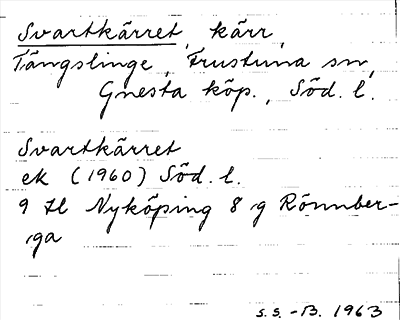 Svartkärret, kärr,
Tängslinge, Frustuna sn,
Gnesta köp., Söd. l.
Svartkärret
ek (1960) Söd. l.
9 H Nyköping 8 g Rönnber-
ga
S.S. -B. 1963